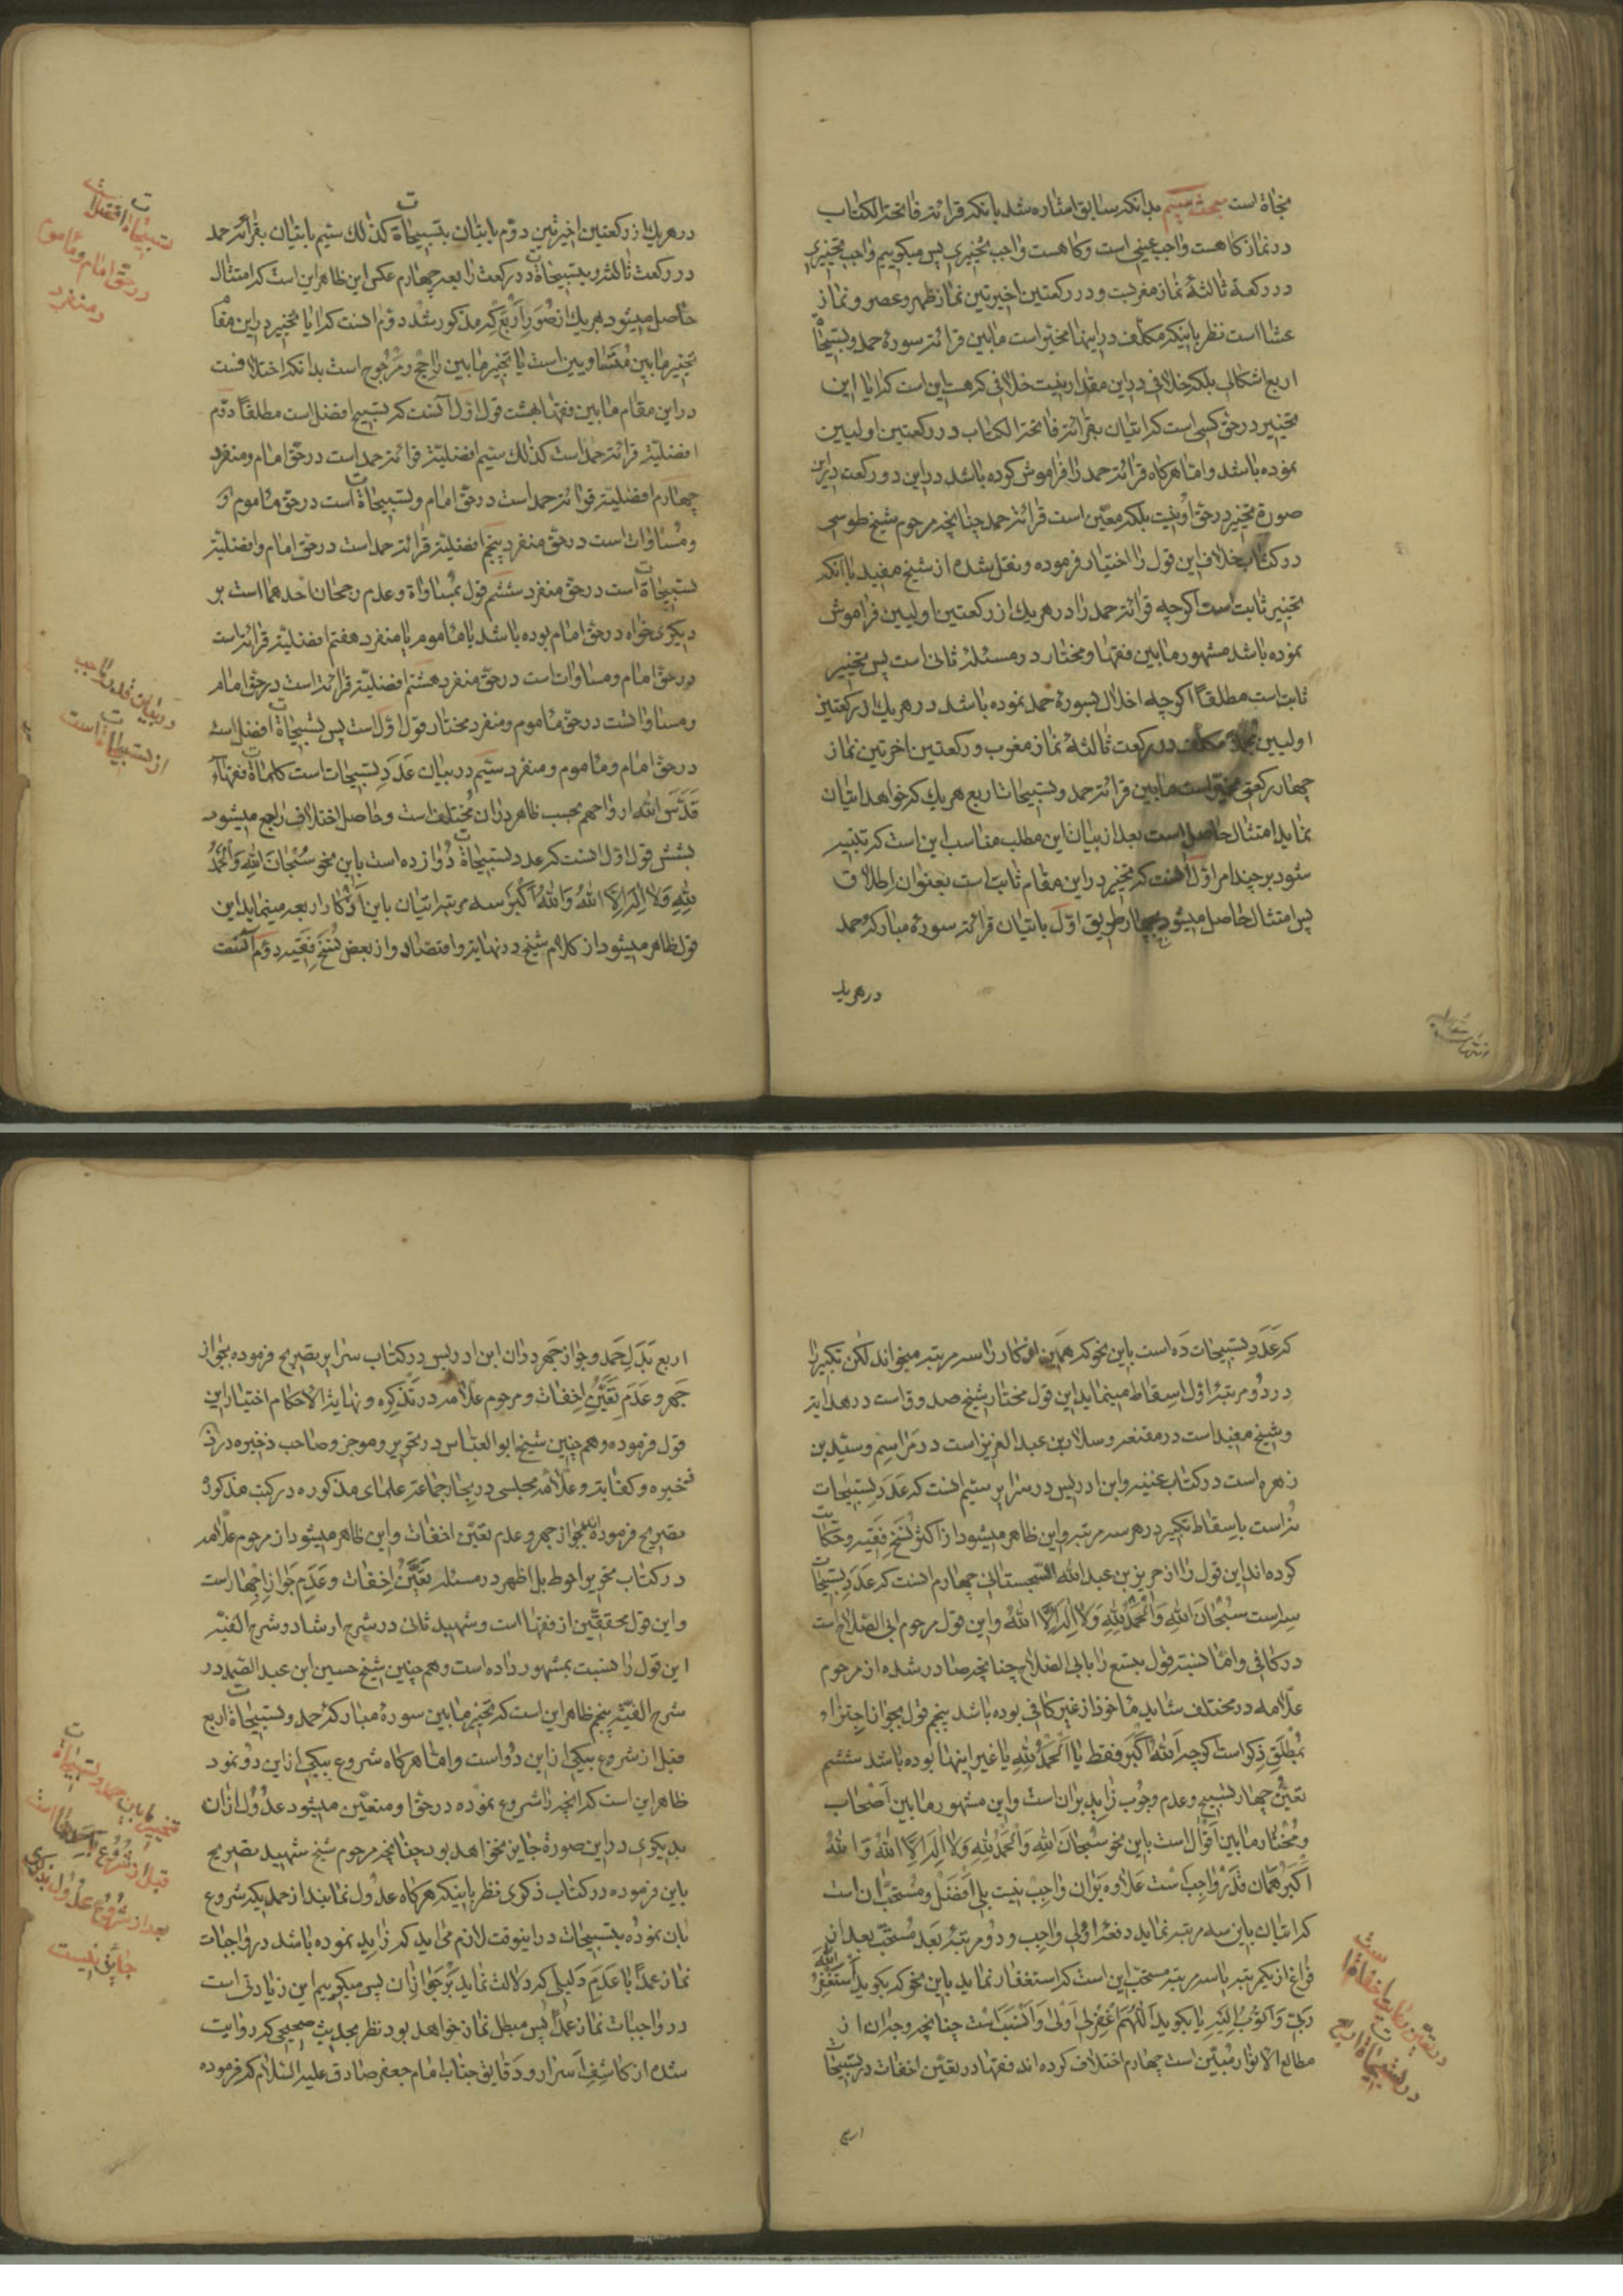 نجاة است مبحث سیم بدانکه سابق اشاره شد بانکه قرائة فاتحة الکتاب
در نماز کاهست واجب عینی است و کاهست واجب تخییری پس میکوییم واجب تخییری
در رکعة ثالثهٔ نماز مغربست و در رکعتین اخیرتین نماز ظهر و عصر و نماز
عشا است نظر باینکه مکلف در اینها مخیر است مابین قرائة سورهٔ حمد و تسبیحات
اربع اشکالی بلکه خلافی در این مقدار نیست خلافی که هست این است که ایا این
تخییر در حق کسی است که اتیان بقرائة فاتحة الکتاب در رکعتین اولیین
نموده باشد و اما هرکاه قرائة حمد را فراموش کرده باشد در این دو رکعت در این
صورة تخییر در حق او نیست بلکه معین است قرائة حمد چنانچه مرحوم شیخ طوسی
در کتاب خلاف این قول را اختیار فرموده و نقل شده از شیخ مفید یا آنکه
تخییر ثابت است اکرچه قرائة حمد را در هریک از رکعتین اولیین فراموش
نموده باشد مشهور مابین فقها و مختار در مسئله ثانی است پس تخییر
ثابت است مطلقاً اکرچه اخلال بسورهٔ حمد نموده باشد در هریک از رکعتین
اولیین مکلف در رکعت ثالثهٔ نماز مغرب و رکعتین اخرتین نماز
چهار رکعتی مخیر است مابین قرائة حمد و تسبیحات اربع هریک که خواهد اتیان
نماید امتثال حاصل است بعد از بیان این مطلب مناسب این است که تنبیه
شود بر چند امر اول انست که تخییر در این مقام ثابت است بعنوان اطلاق
پس امتثال حاصل میشود بچهار طریق اول باتیان قرائة سورهٔ مبارکهٔ حمد
در هریک
در هریک از رکعتین اخیرتین دوم باتیان بتسبیحاة کذلک سیم باتیان بقرائة حمد
در رکعت ثالثه و بتسبیحاة در رکعت رابعه چهارم عکس این ظاهر این است که امتثال
حاصل میشود بهریک از صور اربع که مذکور شد دوم انست که ایا تخییر در این مقام
تخییر مابین متساویین است یا تخییر مابین راجح و مرجوح است بدانکه اختلافست
در این مقام مابین فقها بهشت قول اول آنست که تسبیح افضل است مطلقاً دوم
افضلیة قرائة حمد است کذلک سیم افضلیة قرائة حمد است در حق امام و منفرد
چهارم افضلیة قرائة حمد است در حق امام و تسبیحاة است در حق مأموم و
و مساوات است در حق منفرد پنجم افضلیة قرائة حمد است در حق امام و افضلیة
تسبیحاة است در حق منفرد ششم قول بمساواة و عدم رجحان احدهما است بر
دیکری خواه در حق امام بوده باشد یا مأموم یا منفرد هفتم افضلیة قرائة است
در حق امام و مساوات است در حق منفرد هشتم افضلیة قرائة است در حق امام
و مساوات است در حق مأموم و منفرد مختار قول اول است پس تسبیحاة افضل است
در حق امام و مأموم و منفرد سیم در بیان عدد تسبیحات است کلمات فقهاء
قدس الله ارواحهم بحسب ظاهر در ان مختلف است و حاصل اختلاف راجع میشود
بشش قول اول انست که عدد تسبیحاة دوازده است باین نحو سبحان الله والحمد
لله ولا اله الا الله والله اکبر سه مرتبه اتیان باین اذکار اربعه مینماید این
قول ظاهر میشود از کلام شیخ در نهایة و اقتصاد و از بعض نسخ فقیه دوم آنست
تسبیحاة افضل است
در حق امام و مأموم
و منفرد
در بیان قدر واجب
از تسبیحاة است
که عدد تسبیحات ده است باین نحو که همین اذکار را سه مرتبه میخواند لکن تکبیر را
در دو مرتبهٔ اول اسقاط مینماید این قول مختار شیخ صدوق است در هدایة
و شیخ مفید است در مقنعه و سلار بن عبد العزیز است در مراسم و سید بن
زهره است در کتاب غنیه و ابن ادریس در سرایر سیم انست که عدد تسبیحات
نه است باسقاط تکبیر در هر سه مرتبه و این ظاهر میشود از اکثر نسخ فقیه و حکایت
کرده اند این قول را از حریز بن عبد الله السجستانی چهارم انست که عدد تسبیحات
سه است سبحان الله والحمد لله ولا اله الا الله و این قول مرحوم ابی الصلاح است
در کافی و اما نسبة قول بتسع را بابی الصلاح چنانچه صادر شده از مرحوم
علامه در مختلف شاید مأخوذ از غیر کافی بوده باشد پنجم قول بجواز اجتزاء
بمطلق ذکر است کوچه الله اکبر فقط یا الحمد لله یا غیر اینها بوده باشد ششم
تعین چهار تسبیح و عدم وجوب زاید بر ان است و این مشهور مابین اصحاب
و مختار مابین اقوال است باین نحو سبحان الله والحمد لله ولا اله الا الله والله
اکبر همان قدر واجب است علاوه بر ان واجب نیست بلی افضل و مستحب ان است
که اتیان باین سه مرتبه نماید دفعهٔ اولی واجب و دو مرتبهٔ بعد مستحب بعد از
فراغ از یکمرتبه یا سه مرتبه مستحب این است که استغفار نماید باین نحو که بکوید استغفر الله
ربی واتوب الیه یا بکوید اللهم اغفر لی اولی و انسب است چنانچه وجه ان از
مطالع الانوار مبین است چهارم اختلاف کرده اند فقها در تعین اخفات در تسبیحات
اربع
در تعین و اخفاة است
در تسبیحاة اربع
اربع بدل حمد و جواز جهر در ان ابن ادریس در کتاب سرایر تصریح فرموده بجواز
جهر و عدم تعین اخفات و مرحوم علامه در تذکره و نهایة الاحکام اختیار این
قول فرموده و همچنین شیخ ابو العباس در تحریر و موجز و صاحب ذخیره در
ذخیره و کفایة و علامه مجلسی در بحار جماعة علمای مذکوره در کتب مذکوره
تصریح فرموده اند بجواز جهر و عدم تعین اخفات و این ظاهر میشود از مرحوم علامه
در کتاب تحریر احوط بل اظهر در مسئله تعین اخفات و عدم جواز اجهار است
و این قول محققین از فقها است و شهید ثانی در شرح ارشاد و شرح الفیه
این قول را نسبت بمشهور داده است و همچنین شیخ حسین ابن عبد الصمد در
شرح الفیه پنجم ظاهر این است که تخییر مابین سورهٔ مبارکهٔ حمد و تسبیحاة اربع
قبل از شروع بیکی از این دو است و اما هرکاه شروع بیکی از این دو نمود
ظاهر این است که انچه را شروع نموده در حق او متعین میشود عدول از ان
بدیکری در این صورة جایز نخواهد بود چنانچه مرحوم شیخ شهید تصریح
باین فرموده در کتاب ذکری نظر باینکه هرکاه عدول نماید از حمدیکه شروع
بان نموده بتسبیحات در اینوقت لازم می اید که زاید نموده باشد در واجبات
نماز عمداً با عدم دلیلی که دلالت نماید بر جواز ان پس میکوییم این زیادتی است
در واجبات نماز عمداً پس مبطل نماز خواهد بود نظر بحدیث صحیحی که روایت
شده از کاشف اسرار و دقایق جناب امام جعفر صادق علیه السلام که فرموده
تخییر مابین حمد و تسبیحاة
قبل از شروع است
بعد از شروع عدول بدیکری
جایز نیست